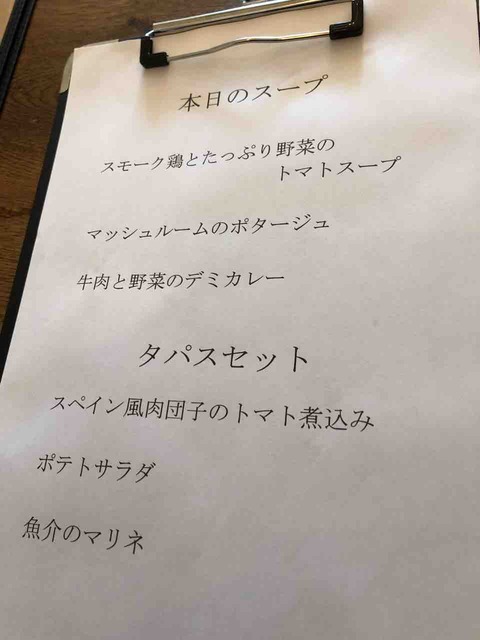 本日のスープ
スモーク鶏とたっぷり野菜の
トマトスープ
マッシュルームのポタージュ
牛肉と野菜のデミカレー
タパスセット
スペイン風肉団子のトマト煮込み
ポテトサラダ
魚介のマリネ